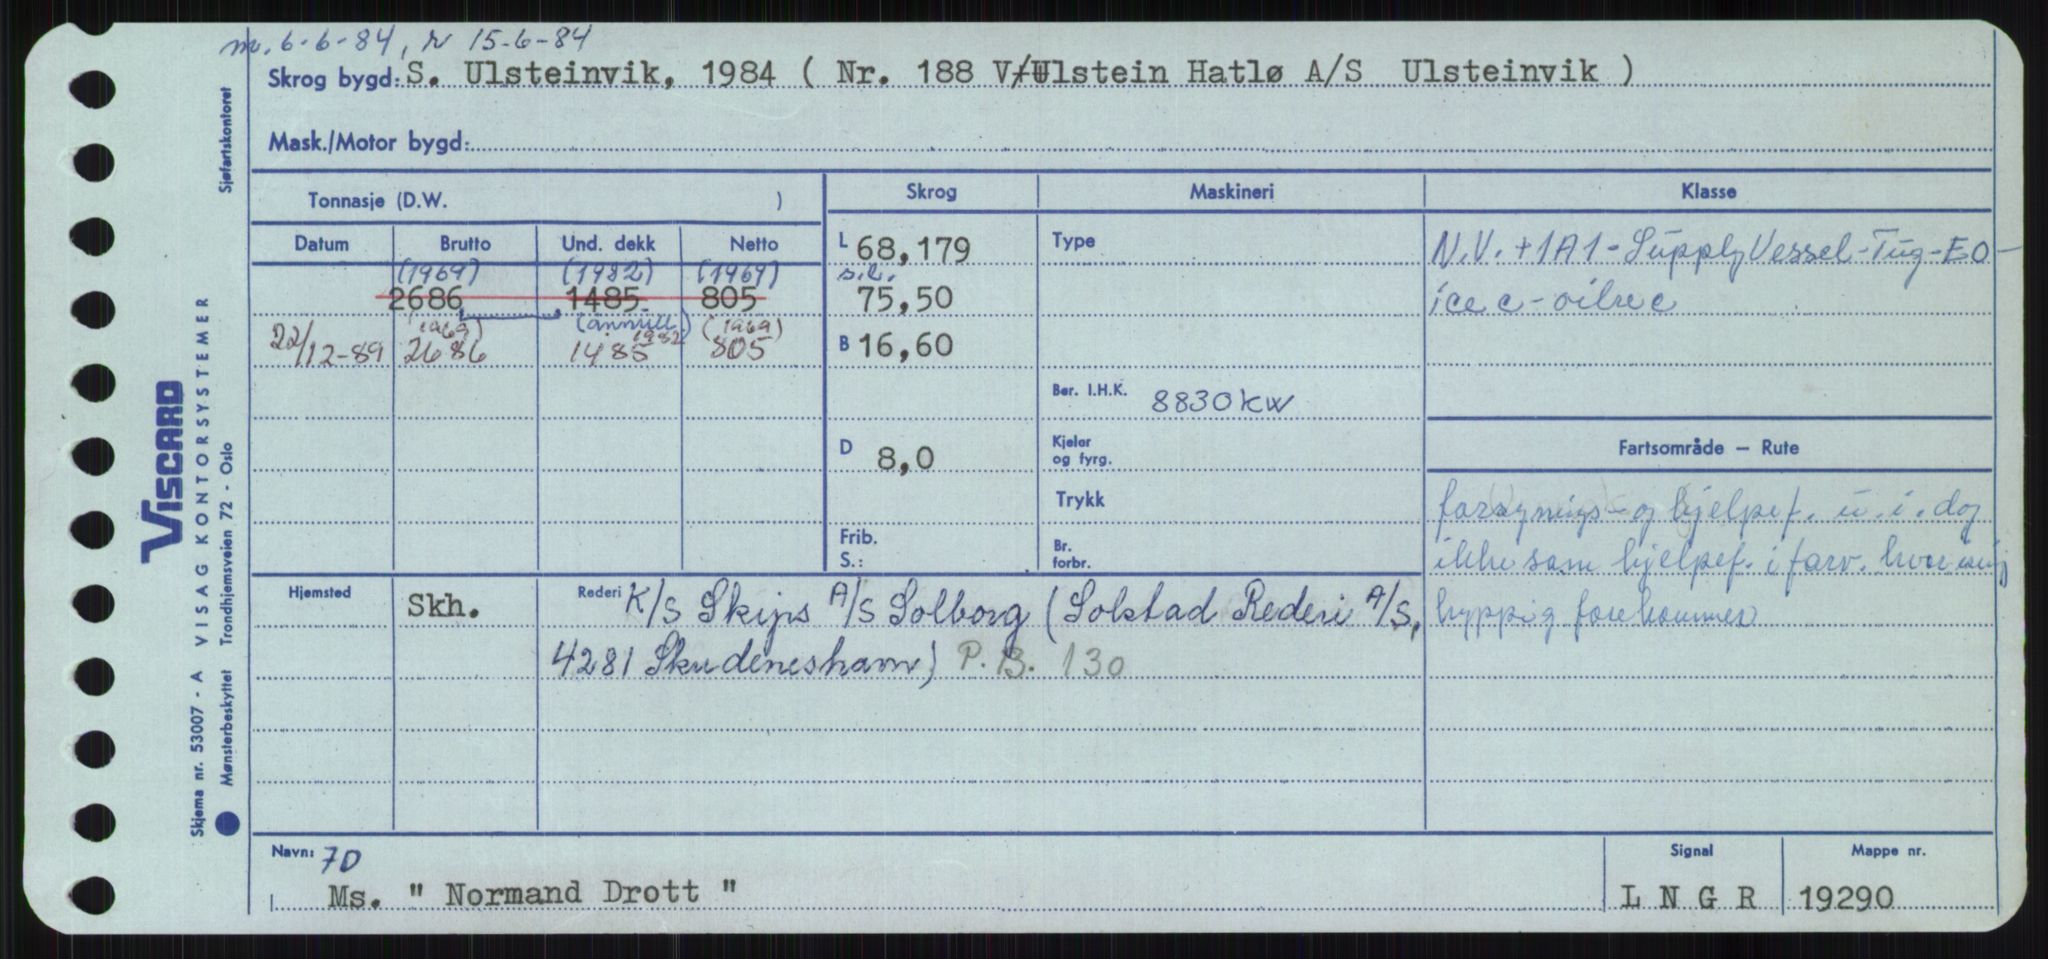 m. 6-6-84, r 15-6-84
Skrog bygd: S. Ulsteinvik, 1984 ( Nr. 188 V/Ulstein Hatlø A/S Ulsteinvik )
Mask./Motor bygd:
Tonnasje (D.W. )
Skrog
Maskineri
Klasse
Datum Brutto Und. dekk Netto
(1969) (1982) (1969)
2686 1485. 805
(1969) (annull) (1969)
22/12-89 2686 1485 1982 805
L 68,179
s.l.
75,50
B 16,60
D 8,0
Frib.
S.:
Type
Ber. I.H.K. 8830 kw
Kjeler
og fyrg.
Trykk
Br.
forbr.
N.V. +1A1-Supply Vessel-Tug-EO-
ice c-oilrec
Fartsområde — Rute
forsynings- og hjelpef. u.i. dog
ikke som hjelpef. i farv. hvor
hyppig forekommer
Hjemsted Skh.
Rederi K/S Skips A/S Solborg (Solstad Rederi A/S,
4281 Skudeneshavn) P.B. 130
Navn: 7D
Ms. " Normand Drott "
Signal
L N G R
Mappe nr.
19290
Sjøfartskontoret
VISCARD
VISAG KONTORSYSTEMER
Trondhjemsveien 72 - Oslo
Skjema nr. 53007 - A
Mønsterbeskyttet